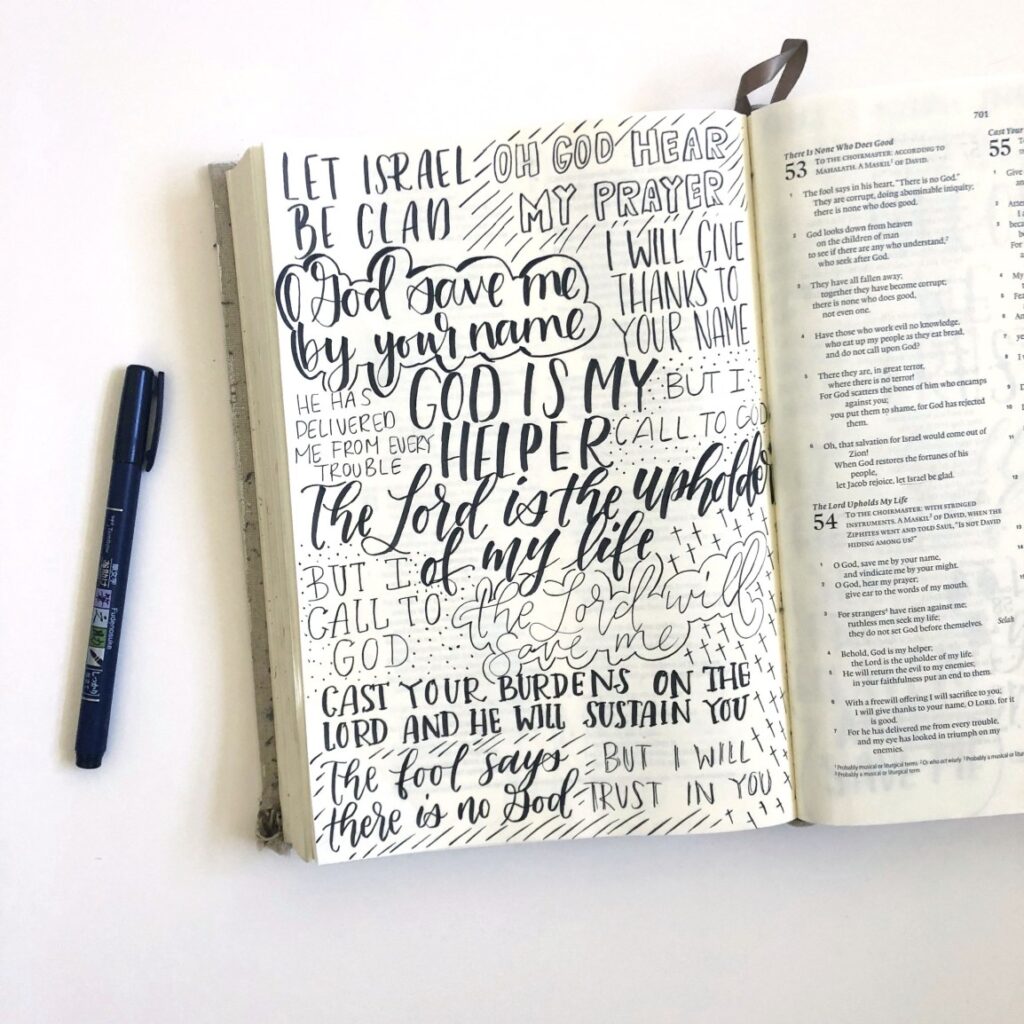 LET ISRAEL
BE GLAD
OH GOD HEAR
MY PRAYER
O God save me
by your name
I WILL GIVE
THANKS TO
YOUR NAME
HE HAS
DELIVERED
ME FROM EVERY
TROUBLE
GOD IS MY
HELPER
BUT I
CALL TO GOD
The Lord is the upholder
of my life
BUT I
CALL TO
GOD
the Lord will
save me
CAST YOUR BURDENS ON THE
LORD AND HE WILL SUSTAIN YOU
The fool says
there is no God
BUT I WILL
TRUST IN YOU
Fudenosuke
701
There Is None Who Does Good
53 TO THE CHOIRMASTER: ACCORDING TO
MAHALATH. A MASKIL¹ OF DAVID.
1 The fool says in his heart, "There is no God."
They are corrupt, doing abominable iniquity;
there is none who does good.
2 God looks down from heaven
on the children of man
to see if there are any who understand,²
who seek after God.
3 They have all fallen away;
together they have become corrupt;
there is none who does good,
not even one.
4 Have those who work evil no knowledge,
who eat up my people as they eat bread,
and do not call upon God?
5 There they are, in great terror,
where there is no terror!
For God scatters the bones of him who encamps
against you;
you put them to shame, for God has rejected
them.
6 Oh, that salvation for Israel would come out of
Zion!
When God restores the fortunes of his
people,
let Jacob rejoice, let Israel be glad.
The Lord Upholds My Life
54 TO THE CHOIRMASTER: WITH STRINGED
INSTRUMENTS. A MASKIL³ OF DAVID, WHEN THE
ZIPHITES WENT AND TOLD SAUL, "IS NOT DAVID
HIDING AMONG US?"
1 O God, save me by your name,
and vindicate me by your might.
2 O God, hear my prayer;
give ear to the words of my mouth.
3 For strangers⁴ have risen against me;
ruthless men seek my life;
they do not set God before themselves. Selah
4 Behold, God is my helper;
the Lord is the upholder of my life.
5 He will return the evil to my enemies;
in your faithfulness put an end to them.
6 With a freewill offering I will sacrifice to you;
I will give thanks to your name, O LORD, for it
is good.
7 For he has delivered me from every trouble,
and my eye has looked in triumph on my
enemies.
¹ Probably musical or liturgical terms ² Or who act wisely
³ Probably a musical or liturgical term
Cast Your
55